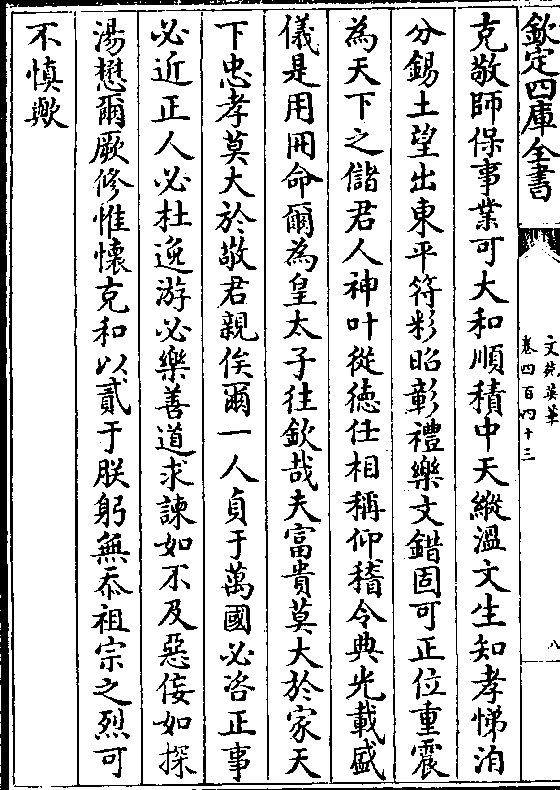 欽定四庫全書
文苑英華
卷四百四十三
八
克敬師保事業可大和順積中天縱溫文生知孝悌洎
分錫土望出東平符彩昭彰禮樂文錯固可正位重震
為天下之儲君人神叶從徳仕相稱仰稽令典光載盛
儀是用冊命爾為皇太子往欽哉夫富貴莫大於家天
下忠孝莫大於敬君親俟爾一人貞于萬國必咨正事
必近正人必杜逸游必樂善道求諫如不及惡佞如探
湯懋爾厥修惟懷克和以貳于朕躬無忝祖宗之烈可
不慎歟